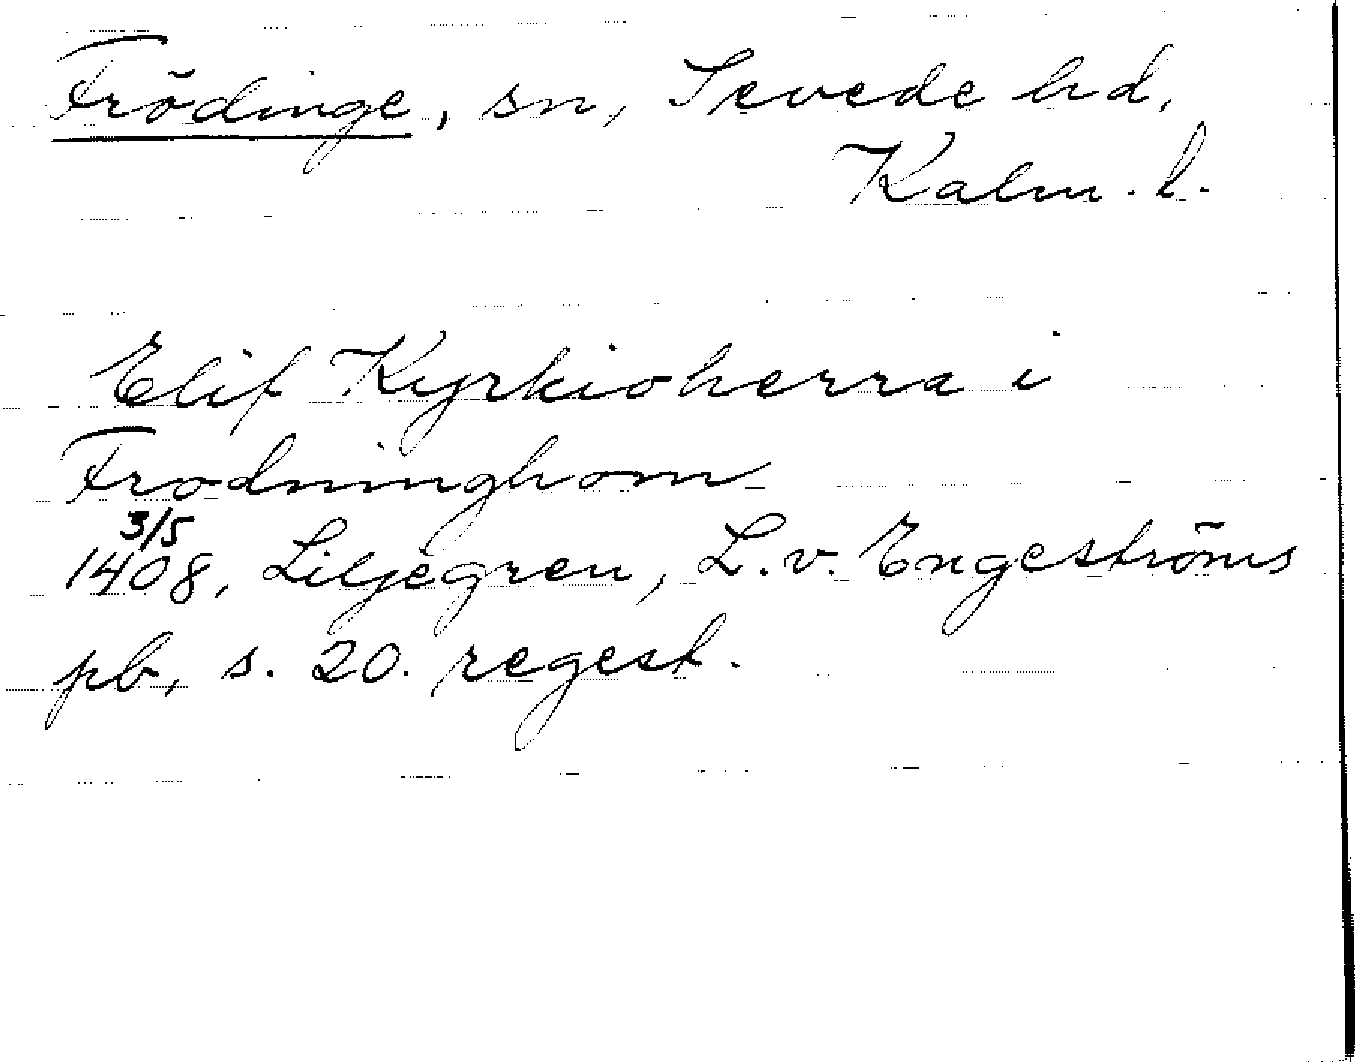 Frödinge, sn, Sevede hd,
Kalm. l.
Elif Kyrkioherra i
Frodninghom
3/5
1408, Liljegren, L. v. Engeströms
pb, s. 20. regest.